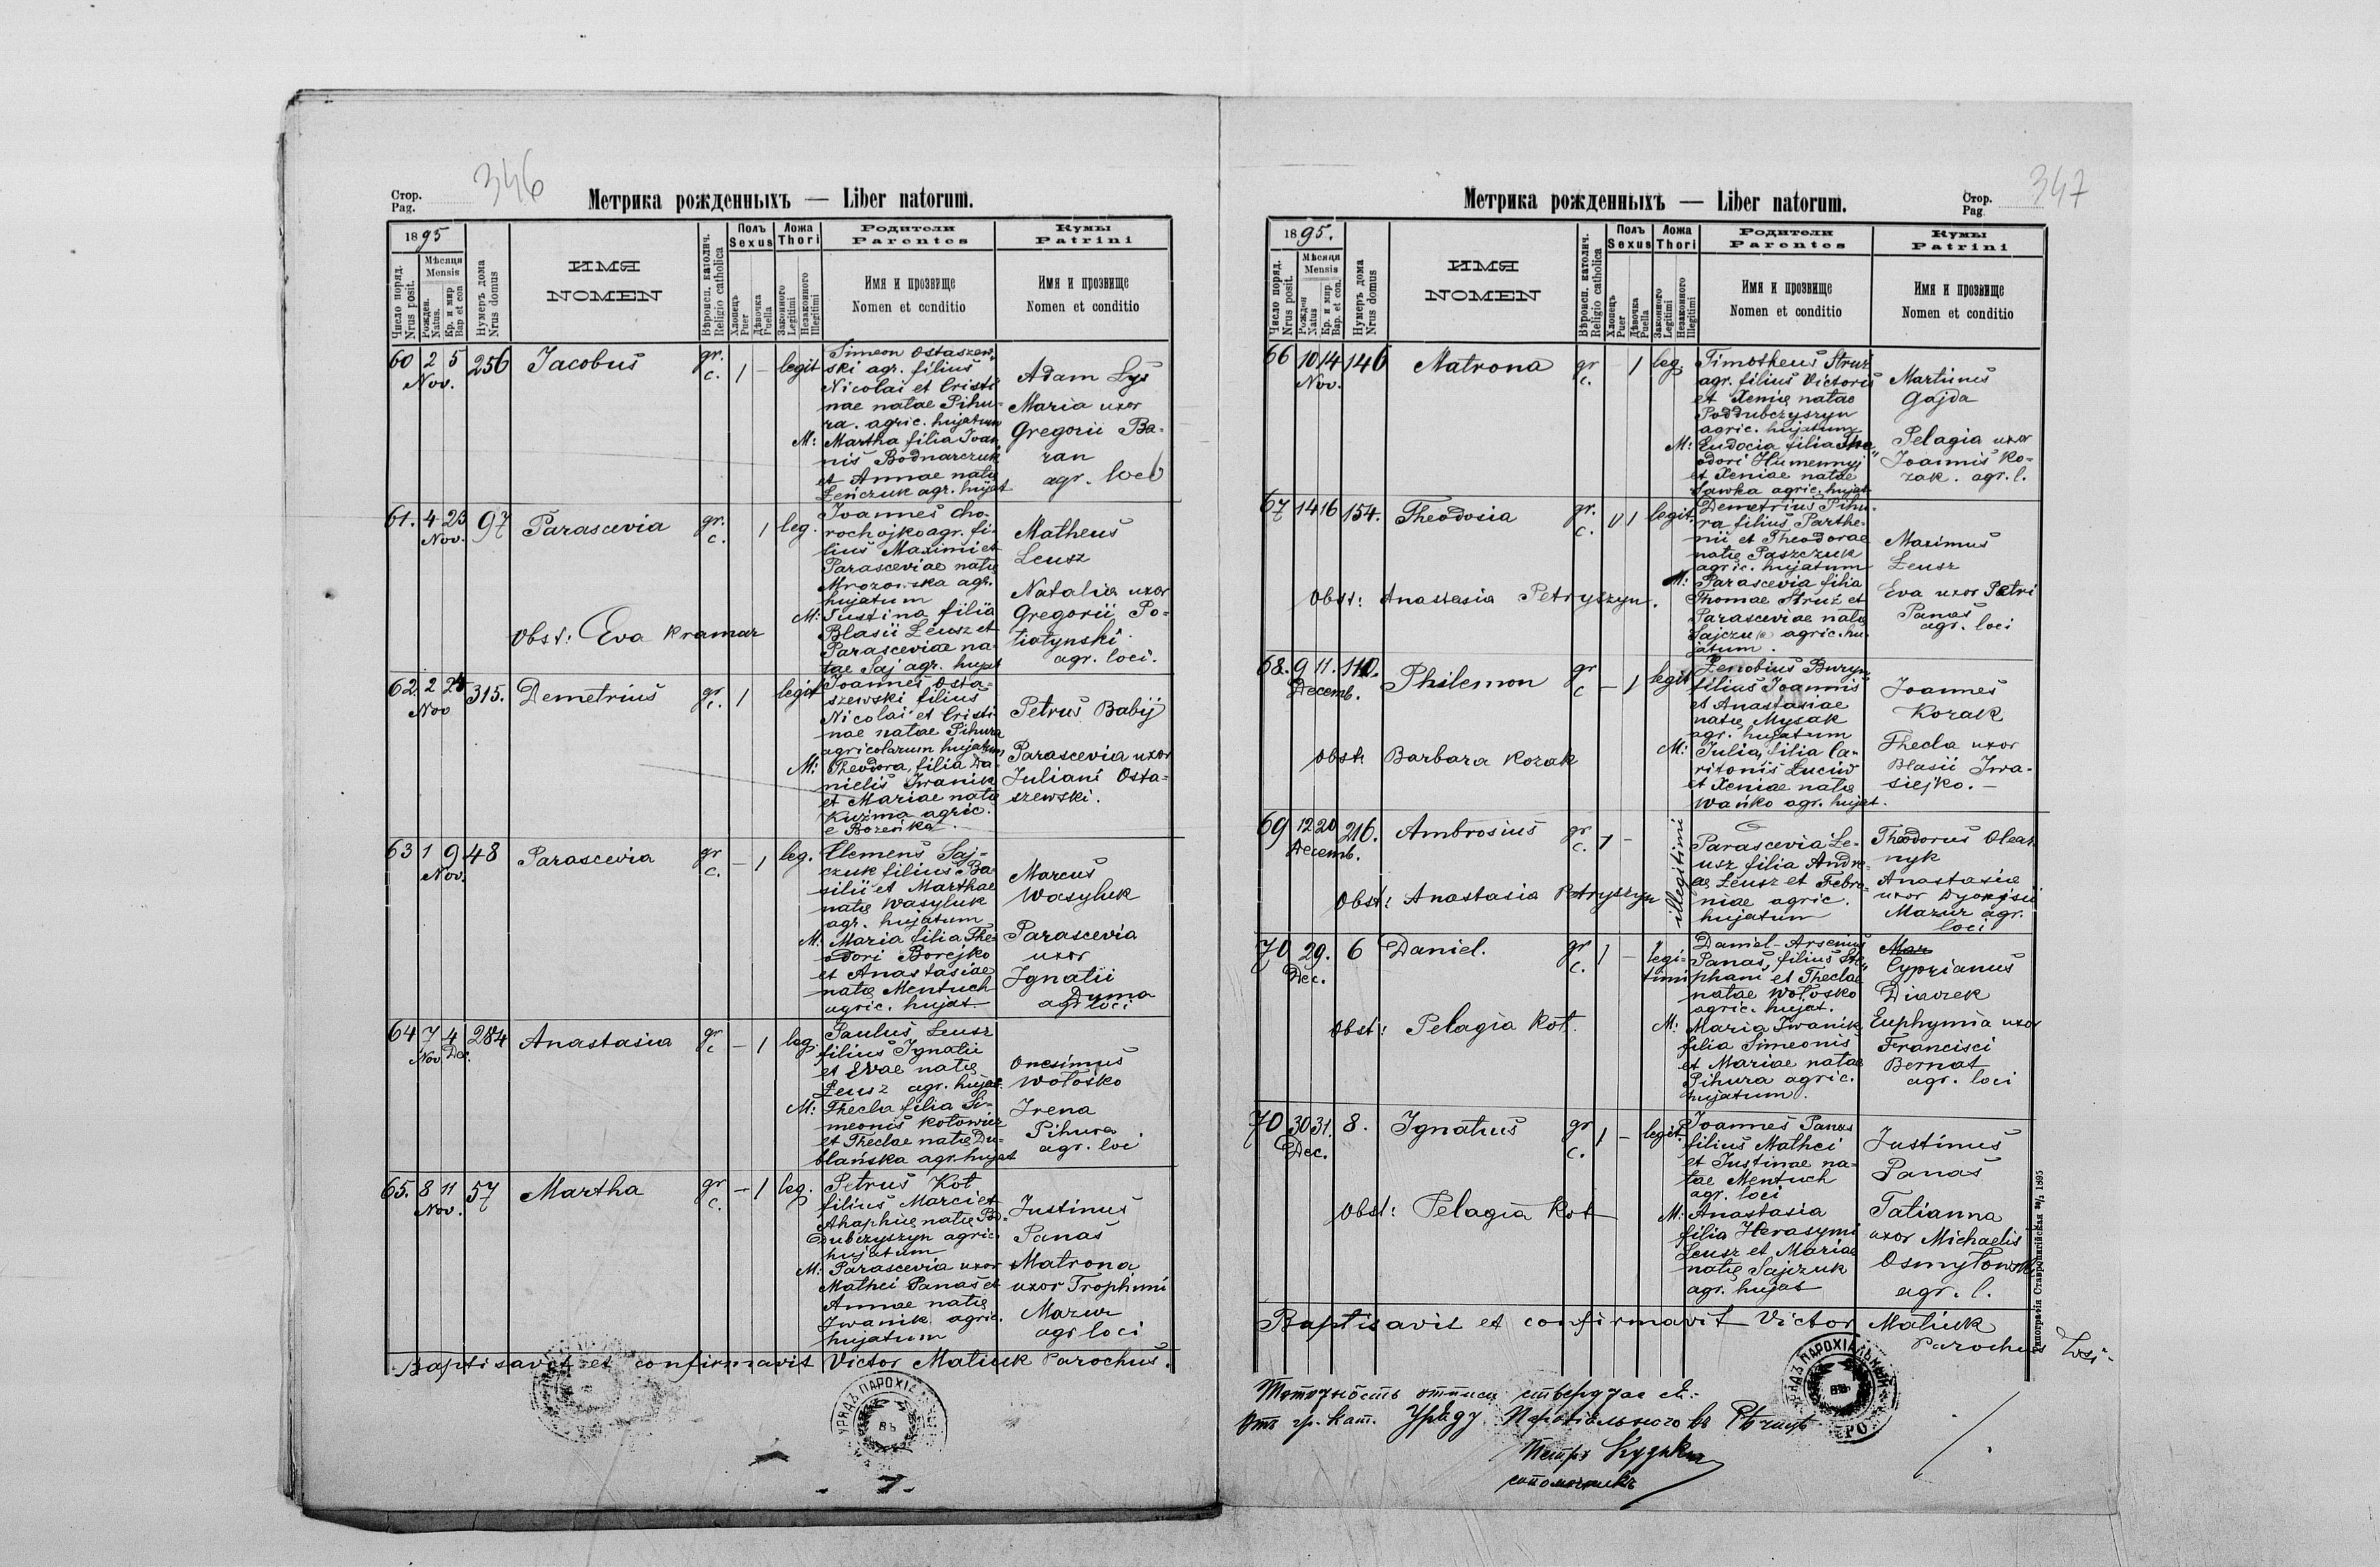 346
Стор.
Pag.
Метрика рожденныхъ — Liber natorum.
1895
Число поряд.
Nrus posit.
Мѣсяця
Mensis
Рожден.
Natus.
Кр. и мир
Bap. et con
Нумеръ дома
Nrus domus
ИМЯ
NOMEN
Вѣроисп. католич.
Religio catholica
Полъ
Sexus
Хлопецъ
Puer
Дѣвочка
Puella
Ложа
Thori
Законного
Legitimi
Незаконного
Illegitimi
Родители
Parentes
Имя и прозвище
Nomen et conditio
Кумы
Patrini
Имя и прозвище
Nomen et conditio
60 2 5 Nov. 256 Jacobus gr. c. 1 – legit
Simeon Ostaszew-
ski agr. filius
Nicolai et Cristi
nae natae Pihu-
ra. agric. hujatum
M: Martha filia Joan
nis Bodnarczuk
et Annae natę
Łeńczuk agr. hujat
Adam Łyś
Maria uxor
Gregorii Ba-
ran
agr. loci
61. 4 23 Nov. 97 Parascevia gr. c. 1 leg.
Joannes Cho-
rochojko agr. fi-
lius Maximi et
Parasceviae natę
Mrozowska agr.
hujatum
M: Justina filia
Blasii Łeusz et
Parasceviae na-
tae Saj agr. hujat
Matheus
Leusz
Natalia uxor
Gregorii Po-
tiatynski
agr. loci.
obst: Eva Kramar
62. 2 25 Nov 315. Demetrius gr. c. 1 legit
Joannes Osta-
szewski filius
Nicolai et Cristi
nae natae Pihura
agricolarum hujatum
M: Theodora, filia Da-
nielis Iwanik
et Mariae natę
Kuźma agric.
e
Petrus Babij
Parascevia uxor
Juliani Osta-
szewski.
63 1 9 Nov. 48 Parascevia gr c. – 1 leg.
Clemens Saj-
czuk filius Ba-
silii et Marthae
natę Wasyluk
agr. hujatum
M: Maria filia The
odori Borejko
et Anastasiae
natę Mentuch
agric. hujat
Marcus
Wasyluk
Parascevia
uxor
Ignatii
Duma
agr loci
64 7 4 Nov Dec. 284 Anastasia gr. c – 1 leg.
Paulus Leusz
filius Ignatii
et Evae natę
Łeusz agr. hujat
M: Thecla filia Si-
meonis Kotowicz
et Theclae natę Du-
blańska agr. hujat
Onesimus
Wołośko
Irena
Pihura
agr. loci
65. 8 11 Nov. 57 Martha gr c. – 1 leg.
Petrus Kot
filius Marci et
Ahaphię natę Pod-
dubczyszyn agric.
hujatum
M: Parascevia uxor
Mathei Panaś et
Annae natę
Iwanik agric.
hujatum
Justinus
Panaś
Matrona
uxor Trophimi
Mazur
agr loci
Baptisavit et confirmavit Victor Matiuk Parochus.
УРЯДЪ ПАРОХІА
ВЪ
347
Стор.
Pag
Метрика рожденныхъ — Liber natorum.
1895.
Число поряд.
Nrus posit.
Мѣсяця
Mensis
Рожден
Natus
Кр. и мир.
Bap. et con.
Нумеръ дома
Nrus domus
ИМЯ
NOMEN
Вѣроисп. католич.
Religio catholica
Полъ
Sexus
Хлопецъ
Puer
Дѣвочка
Puella
Ложа
Thori
Законного
Legitimi
Незаконного
Illegitimi
Родители
Parentes
Имя и прозвище
Nomen et conditio
Кумы
Patrini
Имя и прозвище
Nomen et conditio
66 10 14 Nov. 146 Matrona gr c. – 1 leg.
Timotheus Struż
agr. filius Victoris
et Xenię natae
Poddubczyszyn
agric. hujatum
M: Eudocia filia The
odori Humennyj
et Xeniae natae
Sawka agric. hujat
Martinus
Gajda
Pelagia uxor
Joannis Ko-
zak. agr. l.
67 14 16 154. Theodosia gr. c. 1 legit.
Demetrius Pihu-
ra filius Parthe-
nii et Theodorae
natę Paszczuk
agric. hujatum
M: Parascevia filia
Thomae Struż et
Parasceviae natę
Sajczuk agric. hu-
jatum.
Maximus
Łeusz
Eva uxor Petri
Panaś
agr. loci
obst: Anastasia Petryszyn.
68. 9 11. Decemb. 110. Philemon gr c – 1 legit
Zenobius Buryn
filius Joannis
et Anastasiae
natę Mysak
agr. hujatum
M: Julia, filia Ca-
ritonis Łuciw
et Xeniae natę
Wańko agr. hujat.
Joannes
Kozak
Thecla uxor
Blasii Iwa-
siejko. –
obst: Barbara Kozak
69 12 20 Decemb. 216. Ambrosius gr c. 1 – illegitimi
Parascevia Łe-
usz filia Andre-
ae Łeusz et Febro-
niae agric.
hujatum
Theodorus Olear
nyk
Anastasia
uxor Dyonisii
Mazur agr.
loci
obst: Anastasia Petryszyn
70 29. Dec. 6 Daniel. gr c. 1 – legi-
timi
Daniel-Arsenius
Panaś, filius Ste-
phani et Theclae
natae Wołosko
agric. hujat.
M: Maria Iwanik
filia Simeonis
et Mariae natae
Pihura agric.
hujatum.
Mar
Cyprianus
Diaczek
Euphymia uxor
Francisci
Bernat
agr. loci
obst: Pelagia Kot.
70 30 31. Dec. 8. Ignatius gr c. 1 – legit.
Joannes Panas
filius Mathei
et Justinae na-
tae Mentuch
agr. loci
M: Anastasia
filia Herasymi
Łeusz et Mariae
natę Sajczuk
agr. hujat
Justinus
Panaś
Tatianna
uxor Michaelis
Osmyłowski
agr. l.
obst: Pelagia Kot
Baptisavit et confirmavit Victor Matiuk
Parochus loci
Типографія Ставропигійская 1895
Тотожность отписи стверджає ся:
Отъ гр. кат. Уряду Парохіального въ
Петръ
сотрудникъ
УРЯДЪ ПАРОХІАЛЬНЫЙ
ВЪ